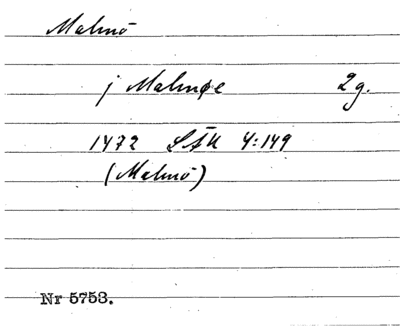 Malmö
j Malmøe 2g.
1472 SÄU 4:149
(Malmö)
Nr 5753.